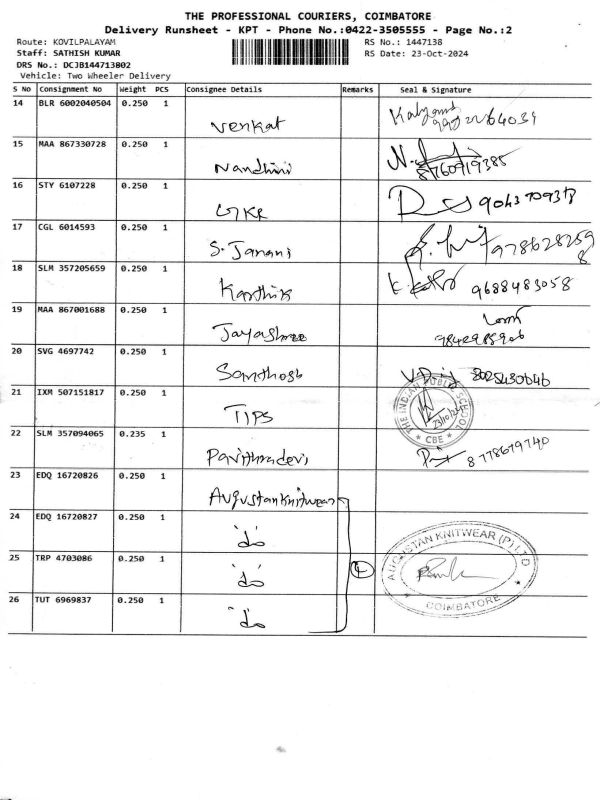 THE PROFESSIONAL COURIERS, COIMBATORE
Delivery Runsheet - KPT - Phone No.:0422-3505555 - Page No.:2
Route: KOVILPALAYAM RS No.: 1447138
Staff: SATHISH KUMAR RS Date: 23-Oct-2024
DRS No.: DCJB144713802
Vehicle: Two Wheeler Delivery
S No Consignment No Weight PCS Consignee Details Remarks Seal & Signature
14 BLR 6002040504 0.250 1
Venkat
15 MAA 867330728 0.250 1
Nandhini 8760919385
16 STY 6107228 0.250 1
17 CGL 6014593 0.250 1
S. Janani 9786282598
18 SLM 357205659 0.250 1
Karthik 9688483058
19 MAA 867001688 0.250 1
Jayashree
20 SVG 4697742 0.250 1
Santhosh
21 IXM 507151817 0.250 1
TIPS
THE INDIAN PUBLIC SCHOOL
23/10/24
* CBE *
22 SLM 357094065 0.235 1
Pavithradevi
23 EDQ 16720826 0.250 1
Augustan knitwear
24 EDQ 16720827 0.250 1
do
25 TRP 4703086 0.250 1
do
AUGUSTAN KNITWEAR (P) LTD
COIMBATORE
26 TUT 6969837 0.250 1
do